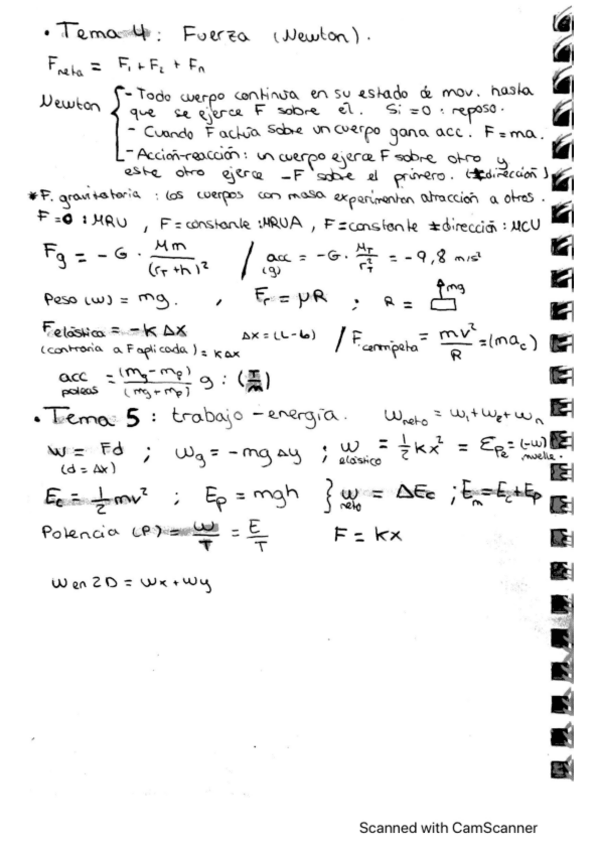 • Tema 4: Fuerza (Newton).
Fneta = F1 + F2 + Fn
Newton { - Todo cuerpo continua en su estado de mov. hasta
que se ejerce F sobre el. Si =0: reposo.
- Cuando F actúa sobre un cuerpo gana acc. F=ma.
- Acción-reacción: un cuerpo ejerce F sobre otro y
este otro ejerce -F sobre el primero. (≠dirección)
* F. gravitatoria: los cuerpos con masa experimentan atracción a otros.
F=0: MRU, F=constante: MRUA, F=constante ≠dirección: MCU
Fg = -G · Mm/(rT+h)² / acc (g) = -G · MT/rT² = -9,8 m/s²
Peso (w) = mg. , Fr = μR ; R = mg
Felástica = -K Δx Δx = (L-L0) / Fcentrípeta = mv²/R = (mac)
(contraria a F aplicada) = KΔx
acc poleas = (mg-mp)/(mg+mp) g : (T/m)
• Tema 5: trabajo-energía. Wneto = W1+W2+Wn
W = Fd ; Wg = -mgΔy ; W elástico = 1/2 kx² = EPe = (-W) muelle.
(d = Δx)
Ec = 1/2 mv² ; Ep = mgh } W neto = ΔEc ; Em = Ec+Ep
Potencia (P) = W/T = E/T F = kx
W en 2D = Wx + Wy
Scanned with CamScanner